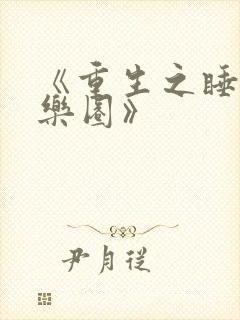 《重生之睡
樂園》
尹月從